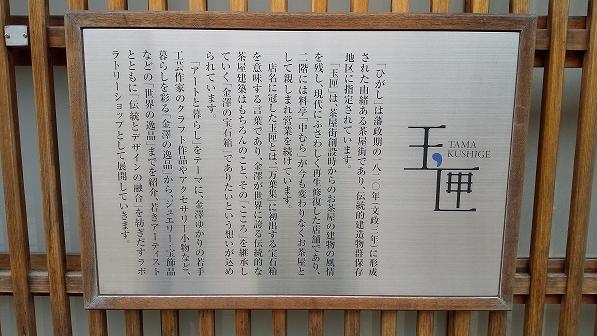 玉匣
TAMA
KUSHIGE
「ひがし」は藩政期の一八二〇年(文政三年)に形成
された由緒ある茶屋街であり、伝統的建造物群保存
地区に指定されています。
「玉匣」は、茶屋街創設時からのお茶屋の建物の風情
を残し、現代にふさわしく再生修復した店舗であり、
二階には料亭「中むら」が今も変わりなくお茶屋と
して親しまれ営業を続けています。
店名に冠した玉匣とは、「万葉集」に初出する宝石箱
を意味する言葉であり、金澤が世界に誇る伝統的な
茶屋建築はもちろんのこと、その「こころ」を継承し
ていく、「金澤の宝石箱」でありたいという想いが込め
られています。
「アートと暮らし」をテーマに、金澤ゆかりの若手
工芸作家のクラフト作品やアクセサリー小物など、
暮らしを彩る「金澤の逸品」から、ジュエリー・宝飾品
などの「世界の逸品」までを紹介、若きアーティスト
とともに「伝統とデザインの融合」を紡ぎだすラボ
ラトリーショップとして展開していきます。